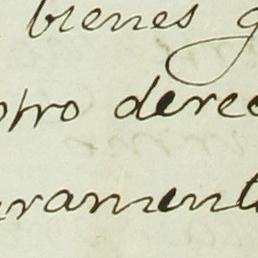 bienes g
otro derec
uramento